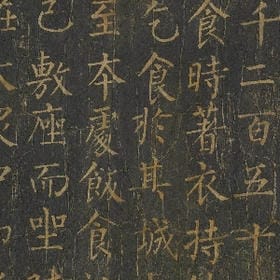 千二百五十
食時著衣持
乞食於其城
至本處飯食
已敷座而坐
大